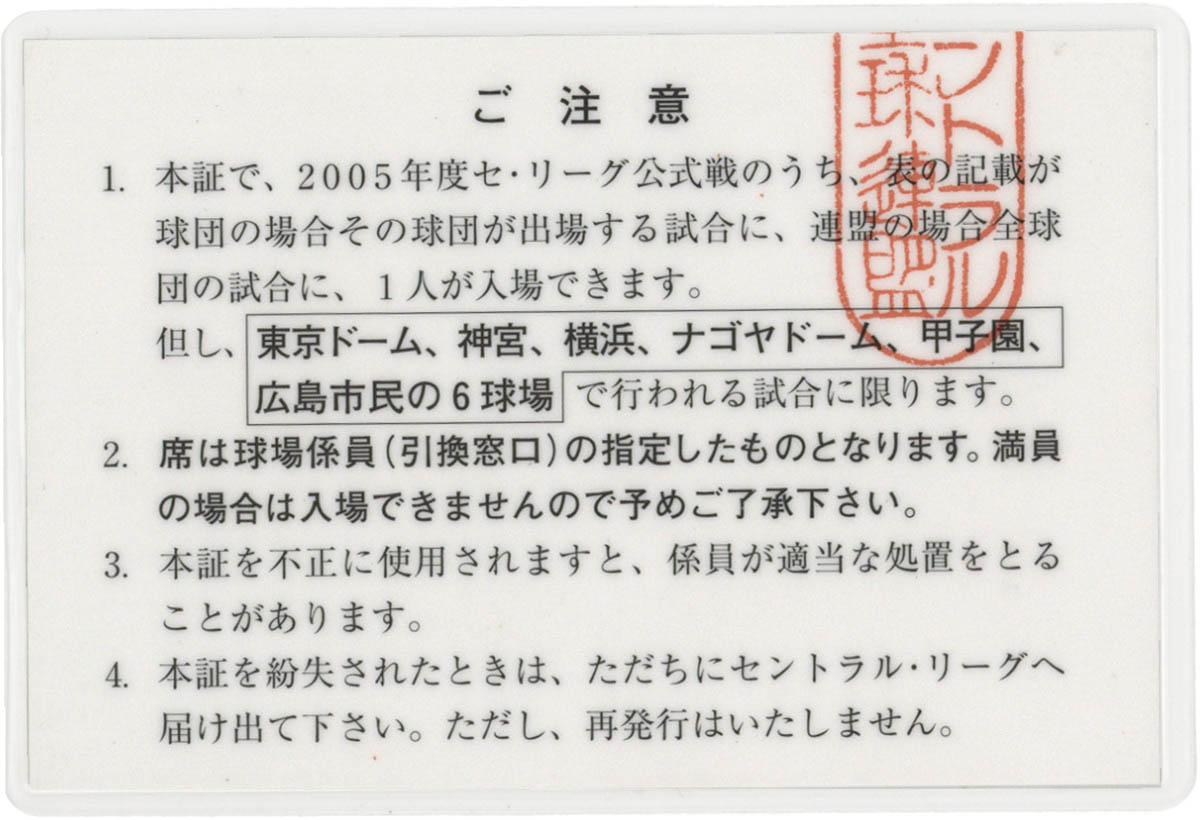 ご注意
1. 本証で、2005年度セ・リーグ公式戦のうち、表の記載が
球団の場合その球団が出場する試合に、連盟の場合全球
団の試合に、1人が入場できます。
但し、東京ドーム、神宮、横浜、ナゴヤドーム、甲子園、
広島市民の6球場で行われる試合に限ります。
2. 席は球場係員(引換窓口)の指定したものとなります。満員
の場合は入場できませんので予めご了承下さい。
3. 本証を不正に使用されますと、係員が適当な処置をとる
ことがあります。
4. 本証を紛失されたときは、ただちにセントラル・リーグへ
届け出て下さい。ただし、再発行はいたしません。
ントラル
球連盟